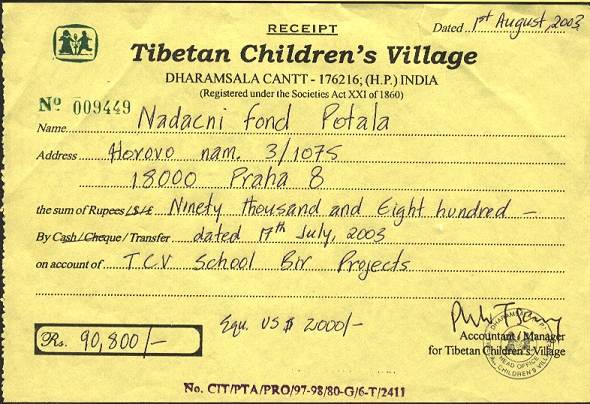 RECEIPT
Dated 1st August, 2003
Tibetan Children's Village
DHARAMSALA CANTT - 176216; (H.P.) INDIA
(Registered under the Societies Act XXI of 1860)
No 009449
Name Nadacni fond Potala
Address Horovo nam. 3/1075
18000 Praha 8
the sum of Rupees/$/£ Ninety thousand and Eight hundred -
By Cash/Cheque/Transfer dated 17th July, 2003
on account of T.C.V School Bir Projects
Rs. 90,800/-
Equ. US $ 2000/-
Accountant/Manager
for Tibetan Children's Village
HEAD OFFICE
No. CIT/PTA/PRO/97-98/80-G/6-T/2411